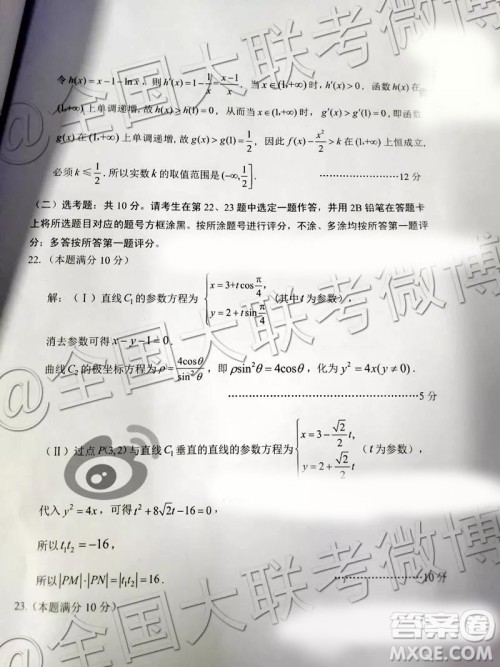 令h(x)=x-1-lnx，则h'(x)=1-1/x=(x-1)/x，当x∈(1,+∞)时，h'(x)>0，函数h(x)在
(1,+∞)上单调递增，故h(x)≥h(1)=0，从而当x∈(1,+∞)时，g'(x)>g'(1)=0，即函数
g(x)在(1,+∞)上单调递增，故g(x)>g(1)=1/2，因此f(x)-x²/2>k在(1,+∞)上恒成立，
必须k≤1/2．所以实数k的取值范围是(-∞,1/2]．……………12分
（二）选考题：共10分。请考生在第22、23题中选定一题作答，并用2B铅笔在答题卡
上将所选题目对应的题号方框涂黑。按所涂题号进行评分，不涂、多涂均按所答第一题评
分；多答按所答第一题评分。
22.（本题满分10分）
解：（Ⅰ）直线C₁的参数方程为{x=3+tcosπ/4, y=2+tsinπ/4（其中t为参数），
消去参数可得x-y-1=0．
曲线C₂的极坐标方程为ρ=4cosθ/sin²θ，即ρsin²θ=4cosθ，化为y²=4x(y≠0)．
……………5分
（Ⅱ）过点P(3,2)与直线C₁垂直的直线的参数方程为{x=3-√2/2 t, y=2+√2/2 t（t为参数），
代入y²=4x，可得t²+8√2t-16=0，
所以t₁t₂=-16，
所以|PM|·|PN|=|t₁t₂|=16．……………10分
23.（本题满分10分）
@全国大联考微博
@全国大联考微博
@全国大联考微博
答案圈
MXQE.COM